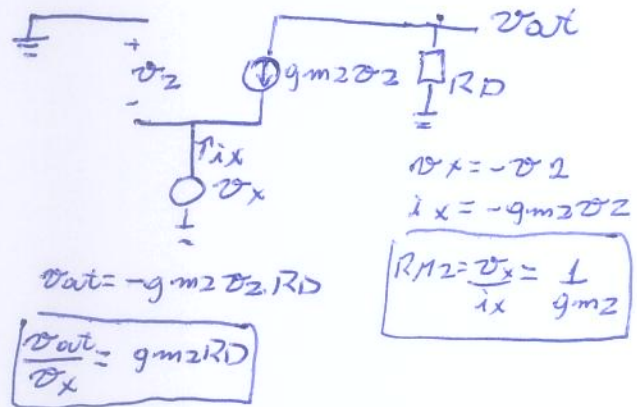 vat
+
v2
-
gm2v2
RD
ix
vx
vx=-v2
ix=-gm2v2
RM2=vx/ix=1/gm2
vat=-gm2v2.RD
vat/vx=gm2RD